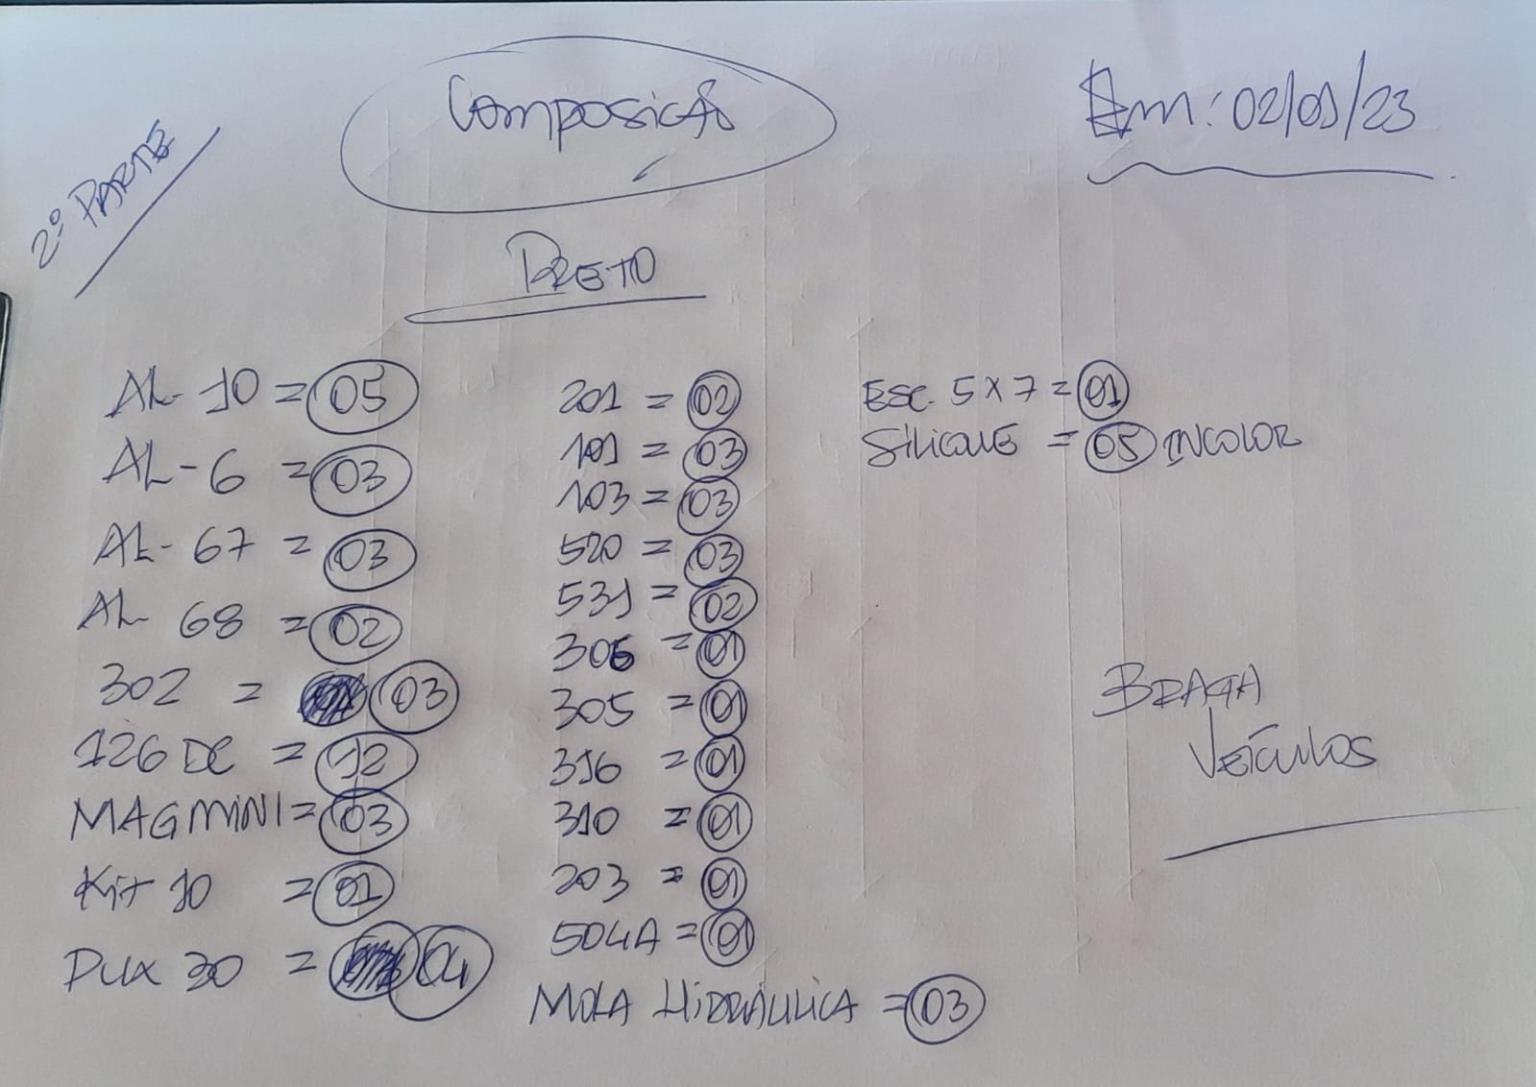 2º PARTE
Composição
Em: 02/01/23
PRETO
AL-10 = 05
AL-6 = 03
AL-67 = 03
AL-68 = 02
302 = 03
126 DC = 12
MAG MINI = 03
Kit 10 = 01
PUX 30 = 04
201 = 02
101 = 03
103 = 03
520 = 03
531 = 02
306 = 01
305 = 01
316 = 01
310 = 01
203 = 01
504A = 01
MOLA HIDRÁULICA = 03
ESC. 5X7 = 01
SILICONE = 05 INCOLOR
BRAGA
VEÍCULOS